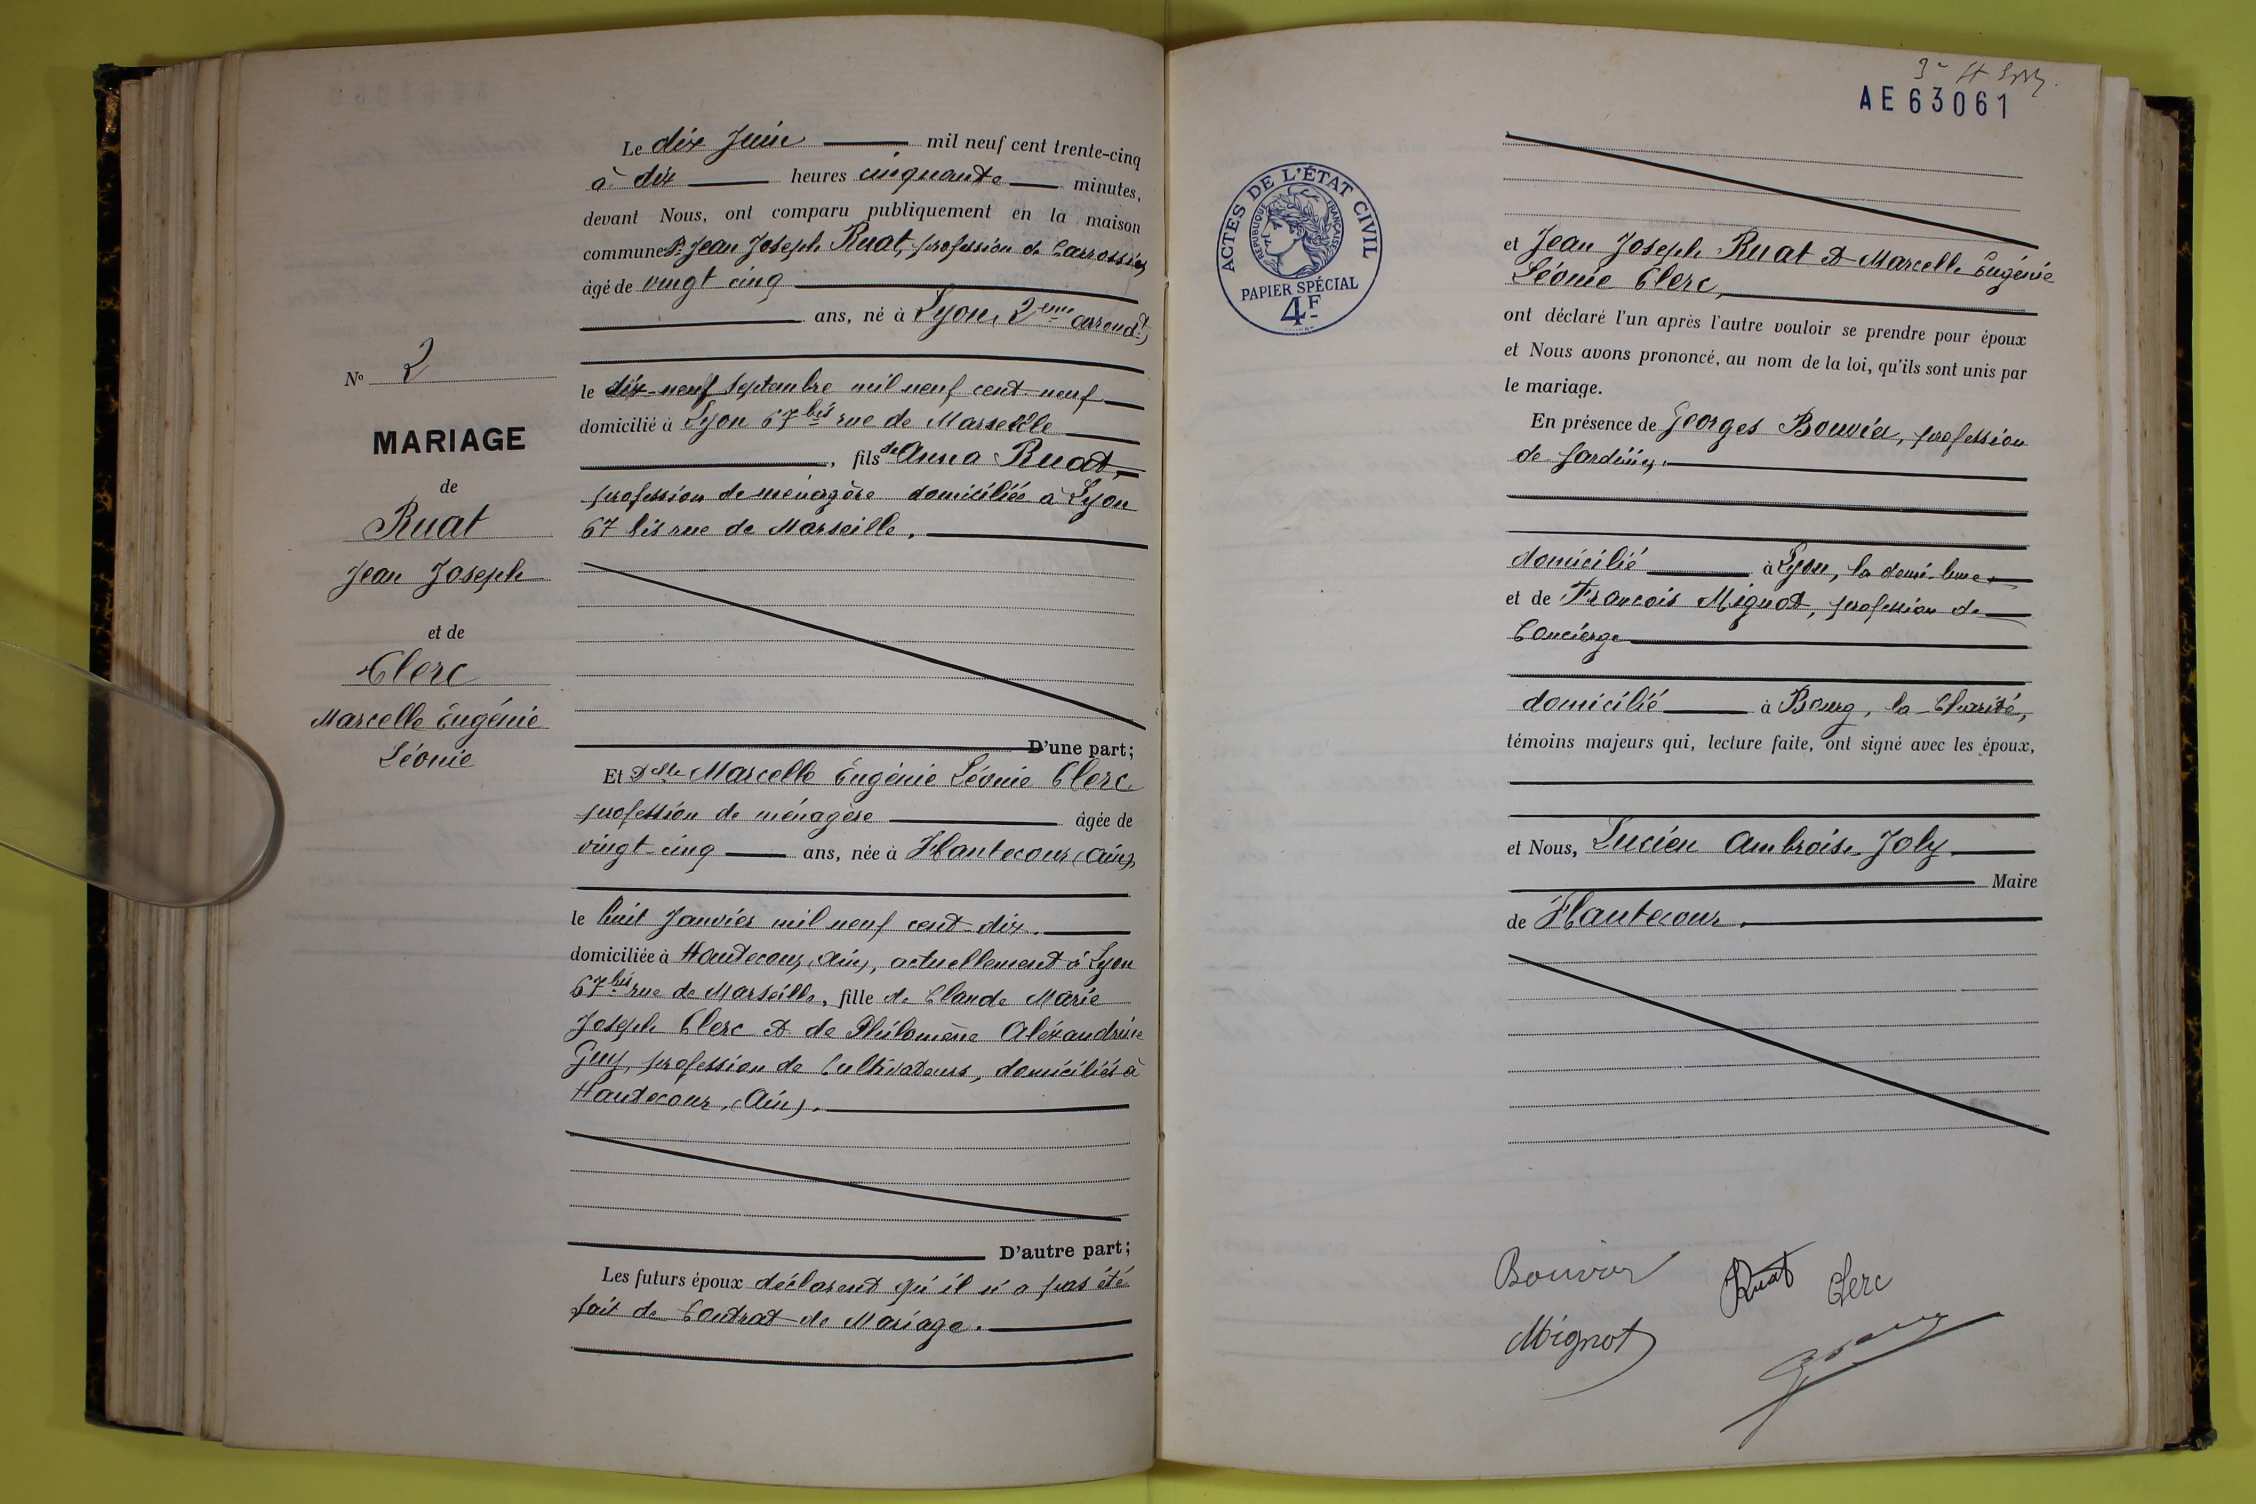 Le dix Juin mil neuf cent trente-cinq
à dix heures cinquante minutes,
devant Nous, ont comparu publiquement en la maison
commune Jean Joseph Ruat, profession de Carrossier
âgé de vingt cinq
ans, né à Lyon, 2ème arrondt,
le dix-neuf Septembre mil neuf cent neuf
domicilié à Lyon 67 bis rue de Marseille
, fils de Anna Ruat,
profession de ménagère domiciliée à Lyon
67 bis rue de Marseille.
No 2
MARIAGE
de
Ruat
Jean Joseph
et de
Clerc
Marcelle Eugénie
Léonie
D'une part;
Et Dlle Marcelle Eugénie Léonie Clerc
profession de ménagère âgée de
vingt-cinq ans, née à Hautecour (Ain)
le huit Janvier mil neuf cent-dix.
domiciliée à Hautecour (Ain), actuellement à Lyon
67 bis rue de Marseille, fille de Claude Marie
Joseph Clerc et de Philomène Alexandrine
Guy, profession de Cultivateurs, domiciliés à
Hautecour, (Ain).
D'autre part;
Les futurs époux déclarent qu'il n'a pas été
fait de Contrat de Mariage.
AE63061
ACTES DE L'ÉTAT CIVIL
RÉPUBLIQUE FRANÇAISE
PAPIER SPÉCIAL
4F
et Jean Joseph Ruat et Marcelle Eugénie
Léonie Clerc,
ont déclaré l'un après l'autre vouloir se prendre pour époux
et Nous avons prononcé, au nom de la loi, qu'ils sont unis par
le mariage.
En présence de Georges Bouvier, profession
de Jardinier.
domicilié à Lyon, la demi-lune
et de François Mignot, profession de
Concierge
domicilié à Bourg, la Charité,
témoins majeurs qui, lecture faite, ont signé avec les époux,
et Nous, Lucien Ambroise Joly
Maire
de Hautecour.
Bouvier Ruat Clerc
Mignot